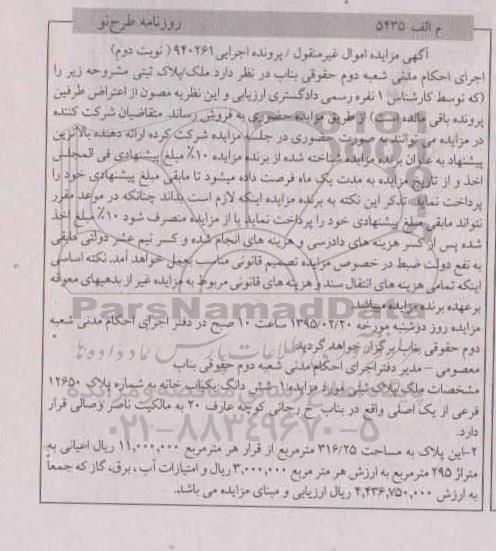 م الف ۵۴۳۵
روزنامه طرح نو
آگهی مزایده اموال غیرمنقول / پرونده اجرایی ۹۴۰۲۶۱ ( نوبت دوم)
اجرای احکام مدنی شعبه دوم حقوقی بناب در نظر دارد ملک/پلاک ثبتی مشروحه زیر را
(که توسط کارشناس ۱ نفره رسمی دادگستری ارزیابی و این نظریه مصون از اعتراض طرفین
پرونده باقی مانده است) از طریق مزایده حضوری به فروش رساند. متقاضیان شرکت کننده
در مزایده می توانند به صورت حضوری در جلسه مزایده شرکت کرده ارائه دهنده بالاترین
پیشنهاد به عنوان برنده مزایده شناخته شده از برنده مزایده ۱۰٪ مبلغ پیشنهادی فی المجلس
اخذ و از تاریخ مزایده به مدت یک ماه فرصت داده میشود تا مابقی مبلغ پیشنهادی خود را
پرداخت نماید. تذکر این نکته به برنده مزایده اینکه لازم است بداند چنانکه در موعد مقرر
نتواند مابقی مبلغ پیشنهادی خود را پرداخت نماید یا از مزایده منصرف شود ۱۰٪ مبلغ اخذ
شده پس از کسر هزینه های دادرسی و هزینه های انجام شده و کسر نیم عشر دولتی مابقی
به نفع دولت ضبط در خصوص مزایده تصمیم قانونی مناسب بعمل خواهد آمد. نکته اساسی
اینکه تمامی هزینه های انتقال سند و هزینه های قانونی مربوط به مزایده غیر از بدهیهای معوقه
بر عهده برنده مزایده میباشد.
مزایده روز دوشنبه مورخه ۱۳۹۵/۰۲/۲۰ ساعت ۱۰ صبح در دفتر اجرای احکام مدنی شعبه
دوم حقوقی بناب برگزار خواهد گردید.
معصومی - مدیر دفتر اجرای احکام مدنی شعبه دوم حقوقی بناب
مشخصات ملک/پلاک ثبتی مورد مزایده: ۱- شش دانگ یکباب خانه به شماره پلاک ۱۲۶۵۰
فرعی از یک اصلی واقع در بناب خ رجائی کوچه عارف ۲۰ به مالکیت ناصر وصالی قرار
دارد.
۲-این پلاک به مساحت ۳۱۶/۲۵ مترمربع از قرار هر مترمربع ۱۱,۰۰۰,۰۰۰ ریال اعیانی به
متراژ ۲۹۵ مترمربع به ارزش هر متر مربع ۳,۰۰۰,۰۰۰ ریال و امتیازات آب ، برق، گاز که جمعاً
به ارزش ۴,۴۳۶,۷۵۰,۰۰۰ ریال ارزیابی و مبنای مزایده می باشد.
ParsNamadData
۰۲۱-۸۸۳۴۹۶۷۰-۵